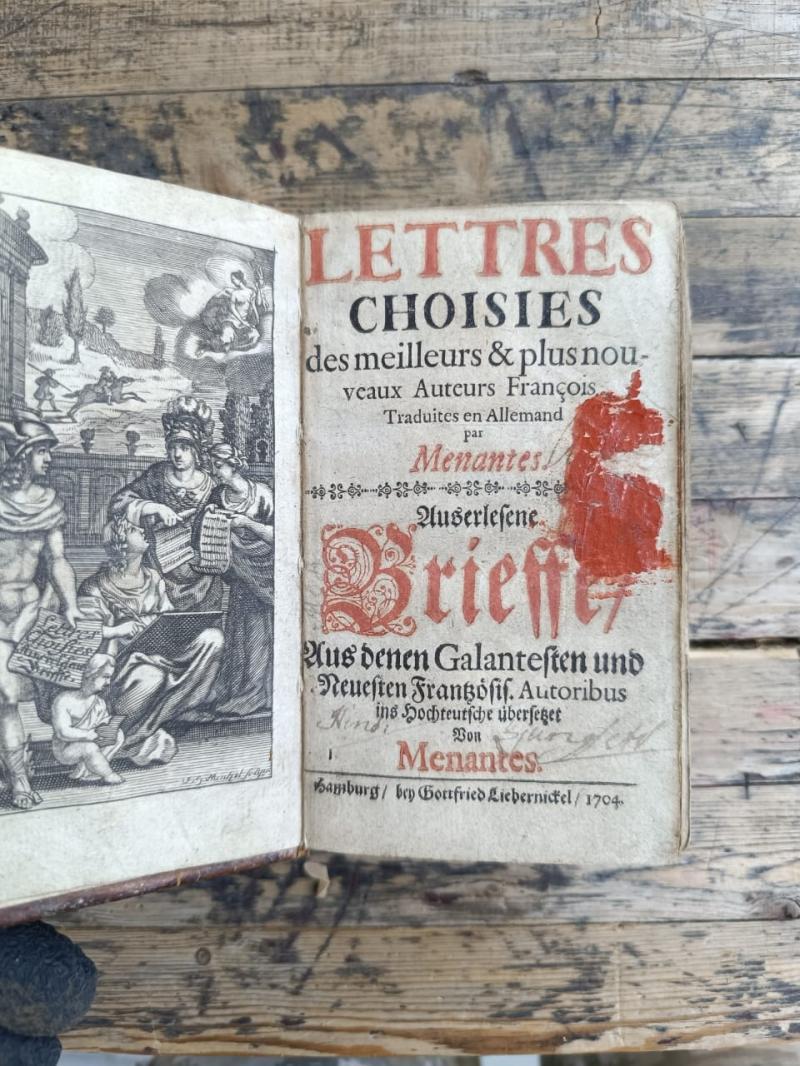 Lettres
Choisies
Auserlesene
Brieffe
J. G. Mentzel sculps.
LETTRES
CHOISIES
des meilleurs & plus nou-
veaux Auteurs François
Traduites en Allemand
par
Menantes.
Auserlesene
Brieffe/
Aus denen Galantesten und
Neuesten Frantzösis. Autoribus
ins Hochteutsche übersetzet
Von
Menantes.
Hamburg/ bey Gottfried Liebernickel/ 1704.